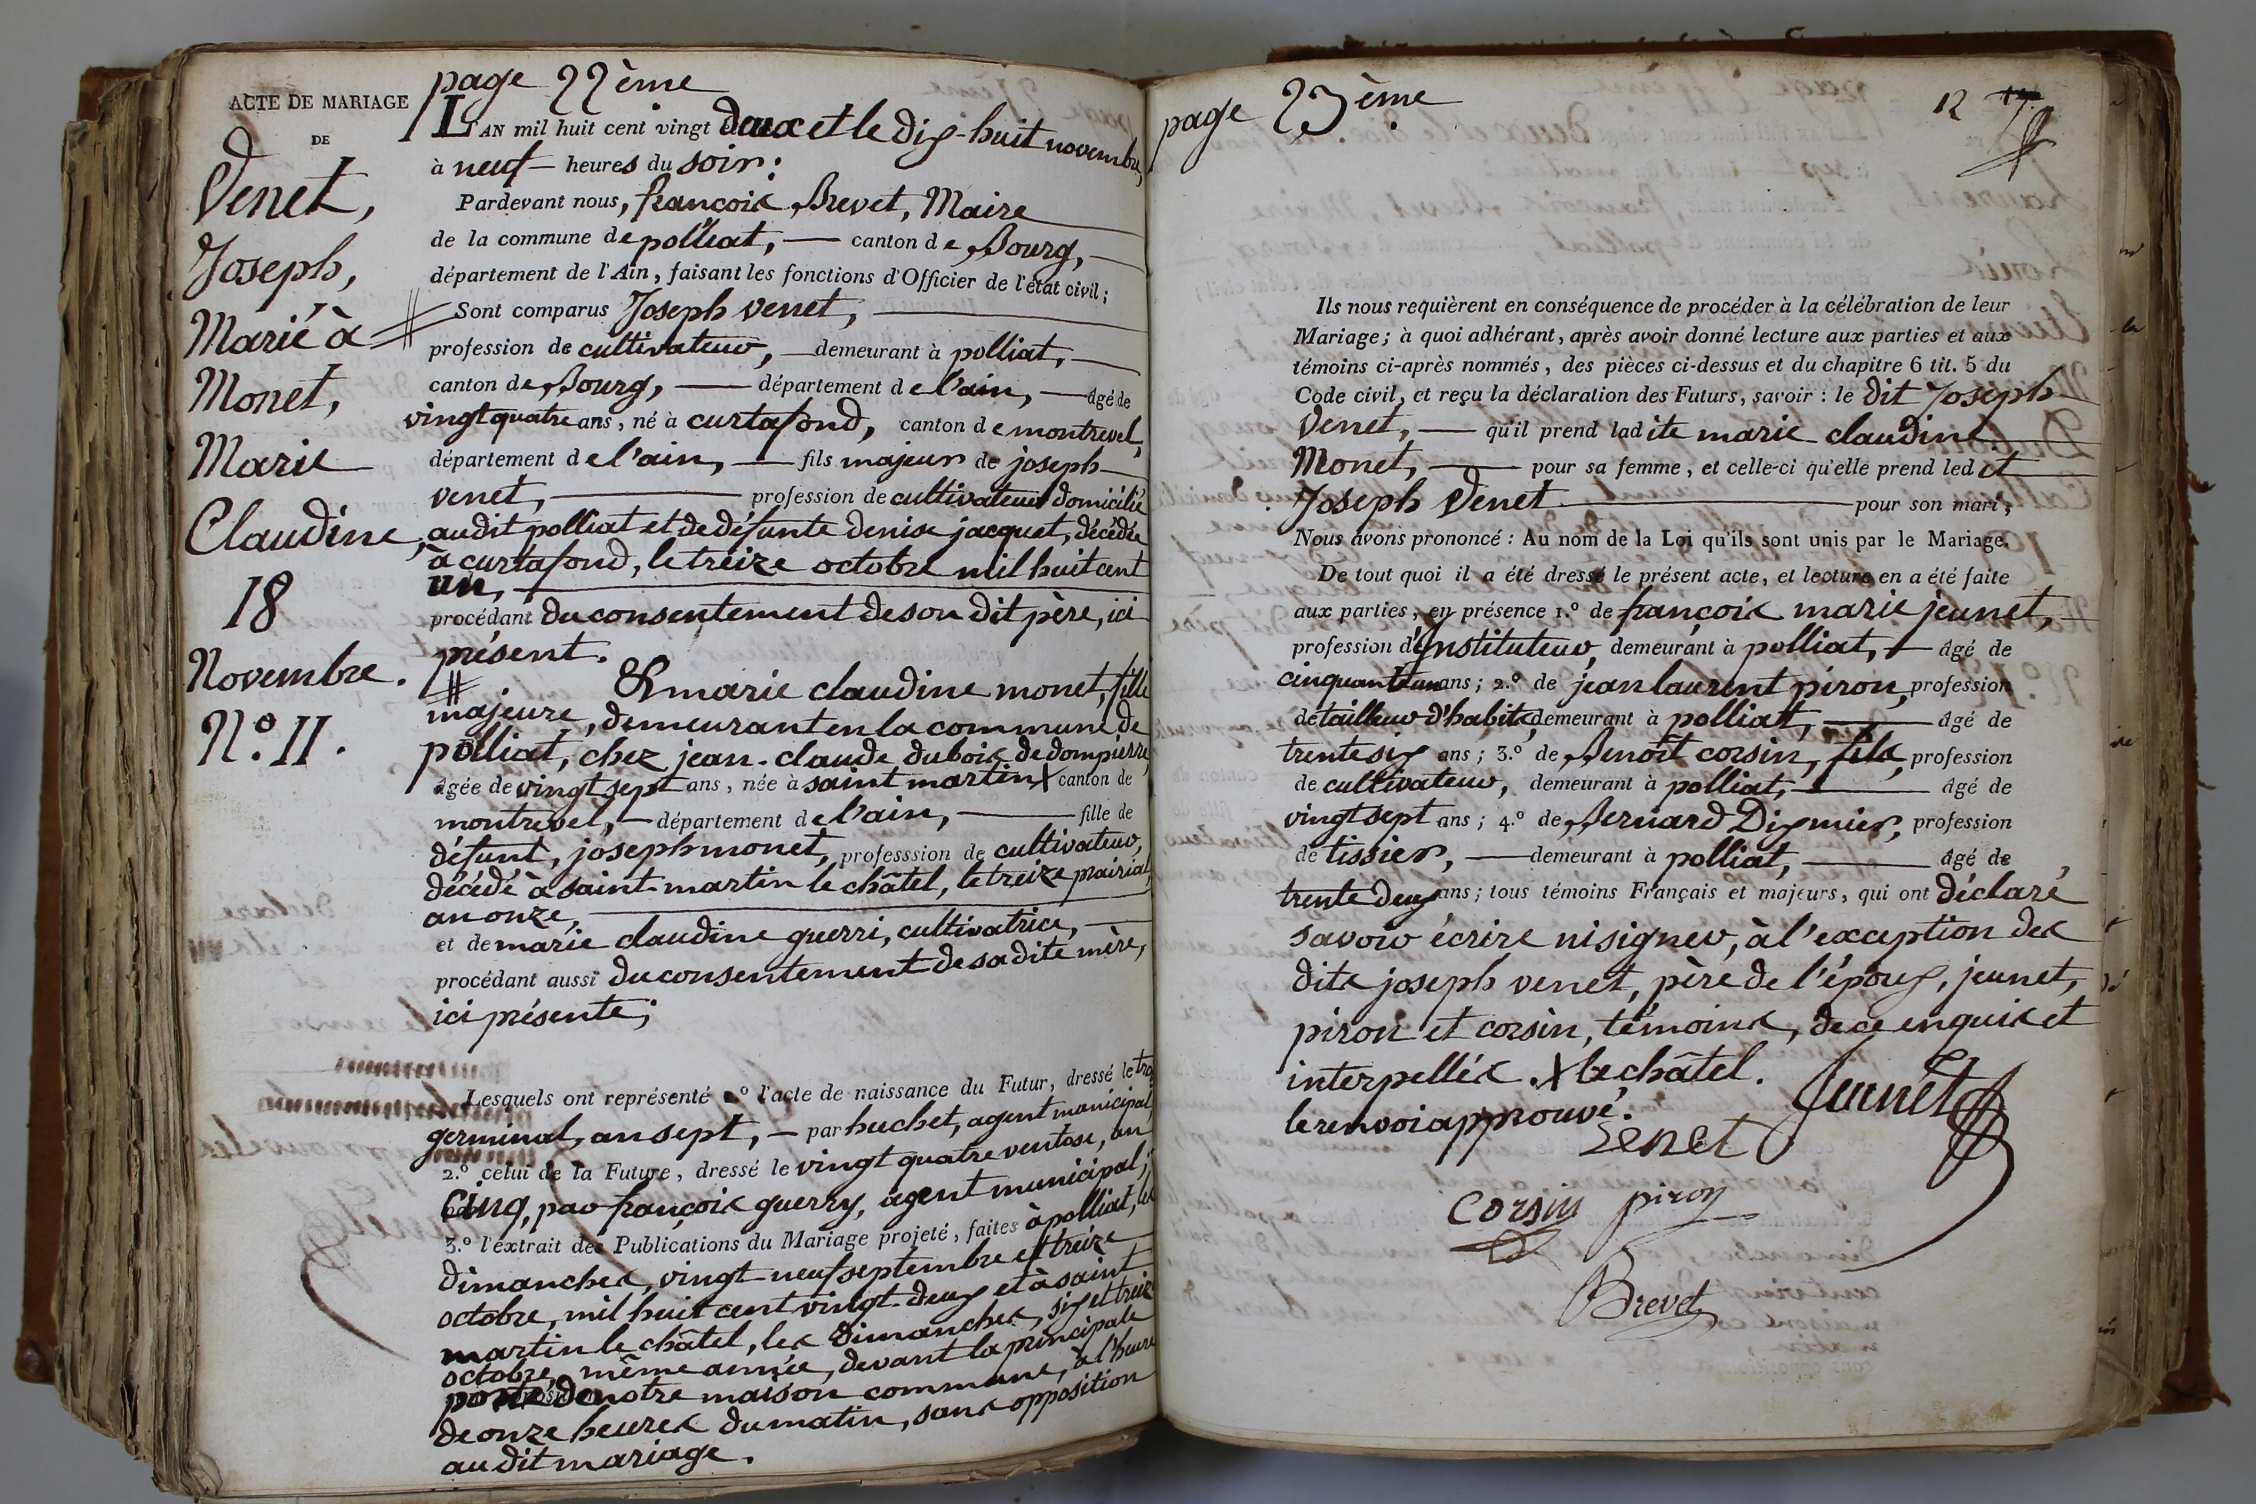 page 22ème
ACTE DE MARIAGE
DE
Venet,
Joseph,
Marié à
Monet,
Marie
Claudine,
18
Novembre.
N.º 11.
L'AN mil huit cent vingt deux et le dix-huit novembre,
à neuf heures du soir:
Pardevant nous, françois Brevet, Maire
de la commune de polliat, canton de Bourg,
département de l'Ain, faisant les fonctions d'Officier de l'état civil;
Sont comparus Joseph venet,
profession de cultivateur, demeurant à polliat,
canton de Bourg, département de l'ain, âgé de
vingt quatre ans, né à curtafond, canton de montrevel,
département de l'ain, fils majeur de joseph
venet, profession de cultivateur domicilié
audit polliat et de défunte denise jacquet, décédée
à curtafond, le treize octobre mil huit cent
un,
procédant du consentement de son dit père, ici
présent.
Et marie claudine monet, fille
majeure, demeurant en la commune de
polliat, chez jean-claude dubois de dompierre,
âgée de vingt sept ans, née à saint martin X canton de
montrevel, département de l'ain, fille de
défunt, joseph monet, professsion de cultivateur,
décédé à saint-martin le châtel, le treize prairial,
an onze,
et de marie claudine guerri, cultivatrice,
procédant aussi du consentement de sa dite mère,
ici présente;
Lesquels ont représenté 1.º l'acte de naissance du Futur, dressé le trois
germinal, an sept, par huchet, agent municipal,
2.º celui de la Future, dressé le vingt quatre ventose, an
Cinq, par françois guerry, agent municipal;
3.º l'extrait des Publications du Mariage projeté, faites à polliat, les
dimanches, vingt-neuf septembre et treize
octobre, mil huit cent vingt-deux et à saint
martin le châtel, les dimanches, six et treize
octobre, même année, devant la principale
porte de notre maison commune, à l'heure
de onze heures du matin, sans opposition
au dit mariage.
page 23ème
12
Ils nous requièrent en conséquence de procéder à la célébration de leur
Mariage; à quoi adhérant, après avoir donné lecture aux parties et aux
témoins ci-après nommés, des pièces ci-dessus et du chapitre 6 tit. 5 du
Code civil, et reçu la déclaration des Futurs, savoir: le dit Joseph
Venet, qu'il prend ladite marie claudine
Monet, pour sa femme, et celle-ci qu'elle prend ledit
Joseph Venet pour son mari;
Nous avons prononcé: Au nom de la Loi qu'ils sont unis par le Mariage.
De tout quoi il a été dressé le présent acte, et lecture en a été faite
aux parties, en présence 1.º de françois marie jeunet,
profession d'Instituteur, demeurant à polliat, âgé de
cinquante un ans; 2.º de jean laurent piron, profession
de tailleur d'habits, demeurant à polliat, âgé de
trente six ans; 3.º de Benoît corsin, fils, profession
de cultivateur, demeurant à polliat, âgé de
vingt sept ans; 4.º de Bernard Dixmier, profession
de tissier, demeurant à polliat, âgé de
trente deux ans; tous témoins Français et majeurs, qui ont déclaré
savoir écrire ni signer, à l'exception des
dits joseph venet, père de l'époux, jeunet,
piron et corsin, témoins, de ce enquis et
interpellés. X le châtel.
le renvoi approuvé.
Jeunet
Venet
corsin piron
Brevet